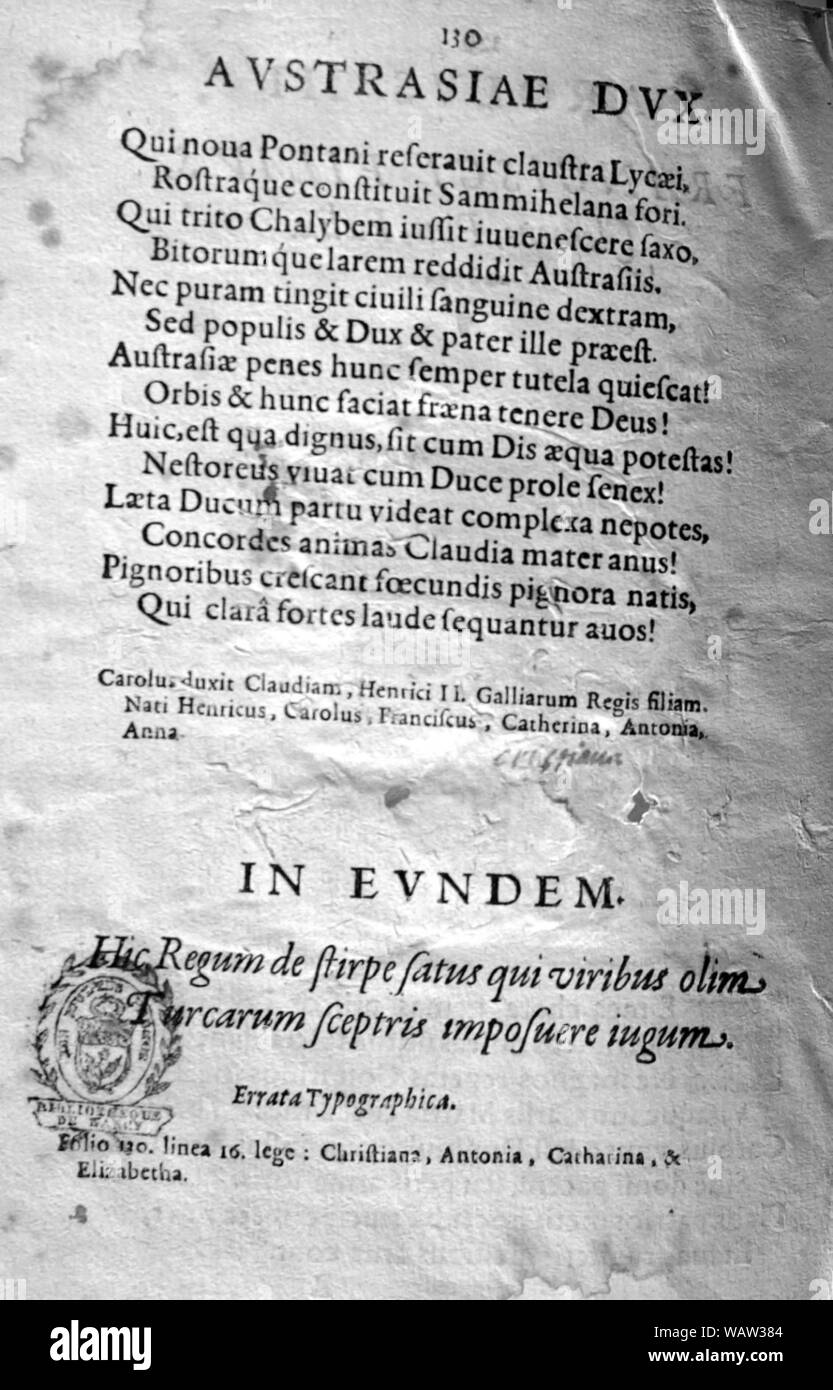 130
AVSTRASIAE DVX.
Qui noua Pontani reſerauit clauſtra Lycæi,
Roſtraq́ue conſtituit Sammihelana fori.
Qui trito Chalybem iuſſit iuueneſcere ſaxo,
Bitorumq́ue larem reddidit Auſtraſiis.
Nec puram tingit ciuili ſanguine dextram,
Sed populis & Dux & pater ille præeſt.
Auſtraſiæ penes hunc ſemper tutela quieſcat!
Orbis & hunc faciat fræna tenere Deus!
Huic, eſt qua dignus, ſit cum Dis æqua poteſtas!
Neſtoreus viuat cum Duce prole ſenex!
Læta Ducum partu videat complexa nepotes,
Concordes animas Claudia mater anus!
Pignoribus creſcant fœcundis pignora natis,
Qui clarâ fortes laude ſequantur auos!
Carolus duxit Claudiam, Henrici II. Galliarum Regis filiam.
Nati Henricus, Carolus, Franciſcus, Catherina, Antonia,
Anna.
IN EVNDEM.
Hic Regum de ſtirpe ſatus qui viribus olim
Turcarum ſceptris impoſuere iugum.
Errata Typographica.
BIBLIOTHEQUE
DE NANCY
Folio 130. linea 16. lege: Chriſtiana, Antonia, Catharina, &
Elizabetha.
alamy
Image ID: WAW384
www.alamy.com